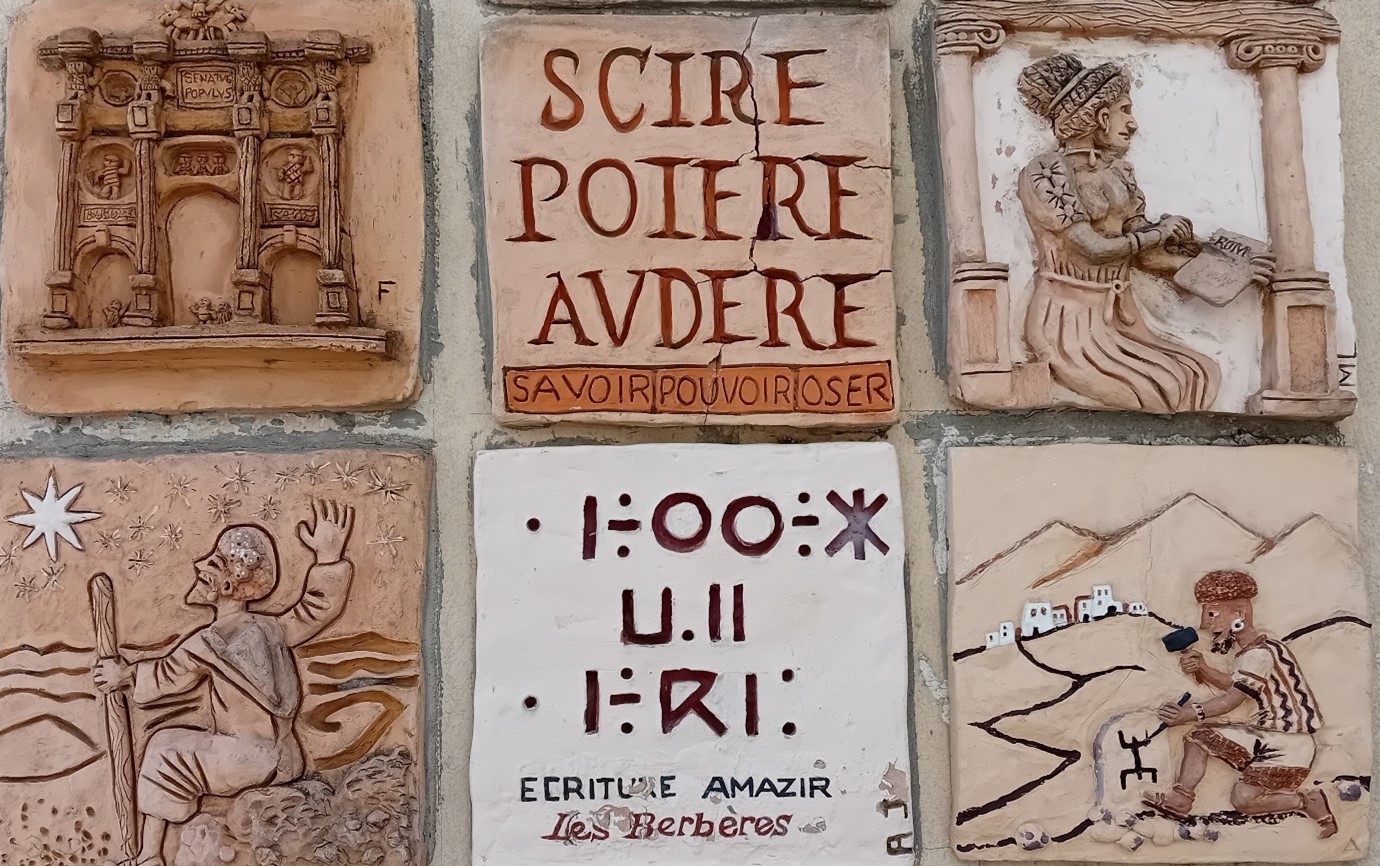 SENATVS
POPVLVS
F
SCIRE
POTERE
AVDERE
SAVOIR POUVOIR OSER
ML
· ⵏⴻⵔⵔⴻⵣ
ⵡ.ⵍ
· ⵏⴻⴽⵏ:
ECRITURE AMAZIR
Les Berbères
AJ